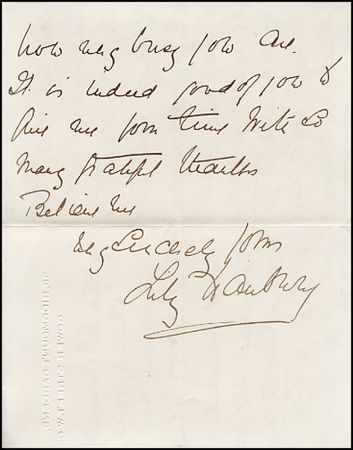 how very busy you are.
It is indeed good of you to
give me your time With so
many grateful thanks
Believe me
very sincerely yours
Lily Hanbury